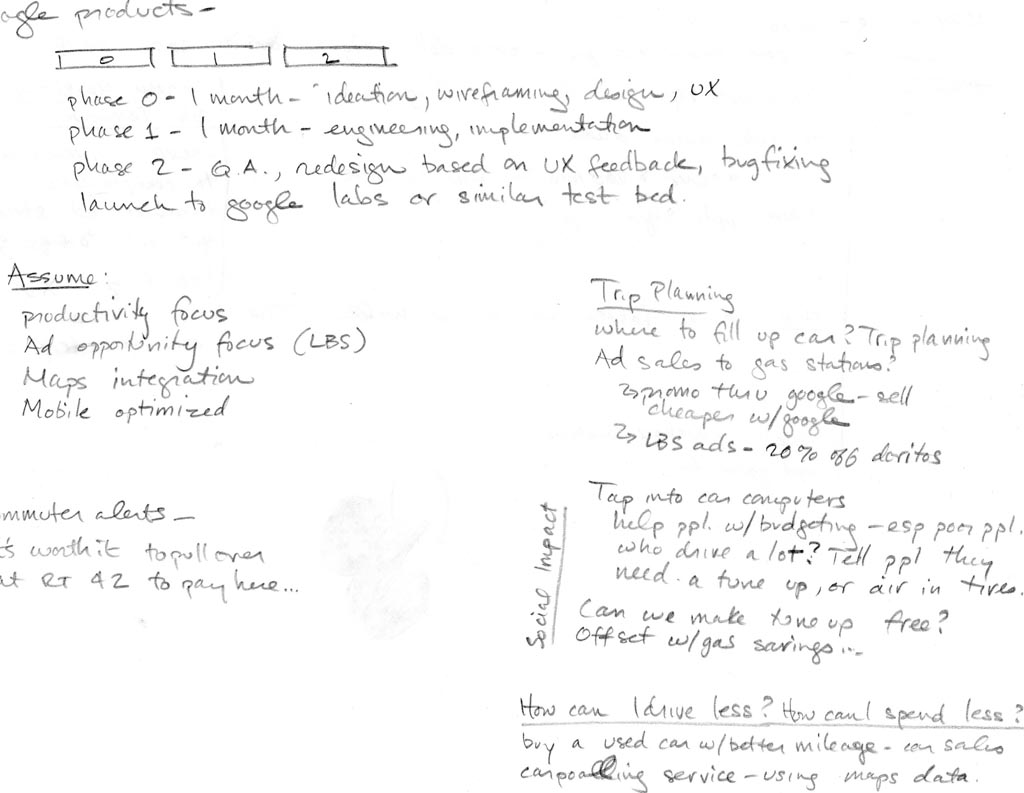 ogle products –
0 1 2
phase 0 – 1 month – ideation, wireframing, design, UX
phase 1 – 1 month – engineering, implementation
phase 2 – Q.A., redesign based on UX feedback, bugfixing
launch to google labs or similar test bed.
Assume:
productivity focus
Ad opportunity focus (LBS)
Maps integration
Mobile optimized
mmuter alerts –
t's worth it to pull over
at RT 42 to pay here...
Trip Planning
where to fill up car? Trip planning
Ad sales to gas stations?
promo thru google – sell
cheaper w/google
LBS ads – 20% off doritos
Social Impact
Tap into car computers
help ppl. w/budgeting – esp poor ppl.
who drive a lot? Tell ppl they
need a tune up, or air in tires.
Can we make tune up free?
Offset w/gas savings...
How can I drive less? How can I spend less?
buy a used car w/better mileage – car sales
carpoolling service – using maps data.